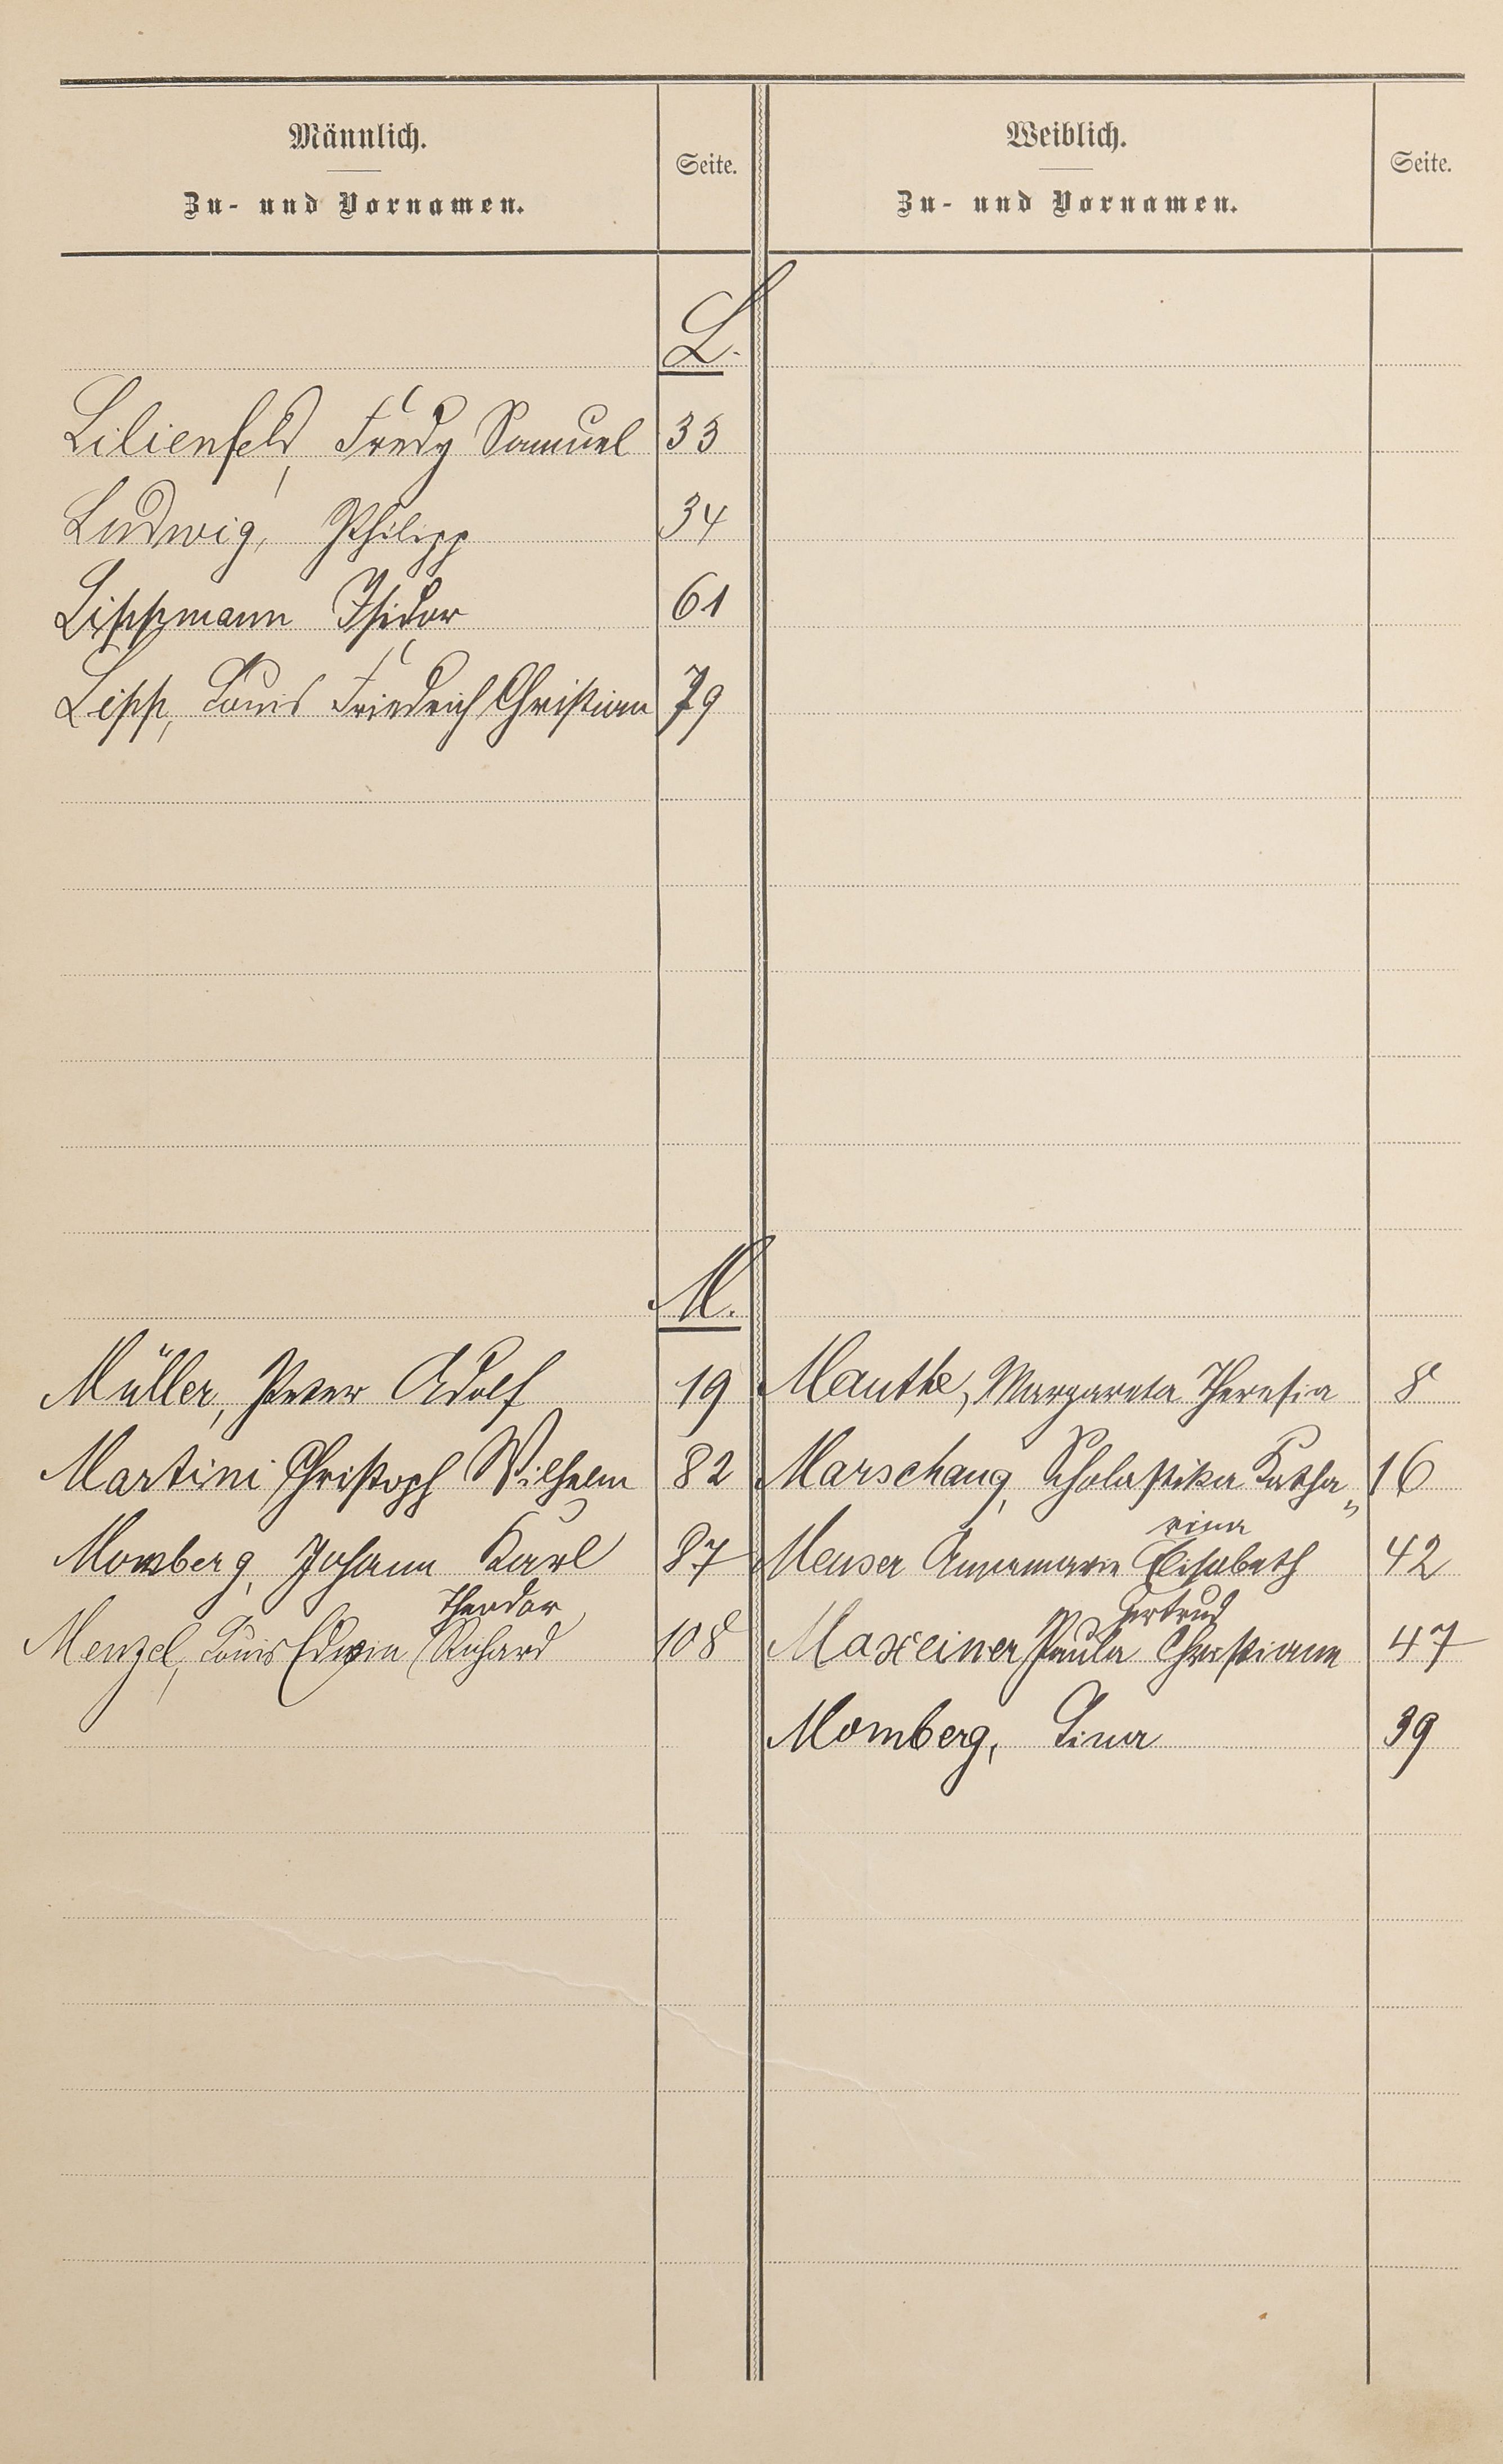 Männlich.
Zu- und Vornamen.
Seite.
Weiblich.
Zu- und Vornamen.
Seite.
L.
Lilienfeld, Fredy Samuel 33
Ludwig, Philipp 34
Lippmann Isidor 61
Lipp, Louis Friedrich Christian 79
M.
Müller, Peter Adolf 19
Mauthe, Margareta Theresia 8
Martini, Christoph Wilhelm 82
Marschang, Scholastika Katha„ 16
rina
Momberg, Johann Karl 87
Menser Annamarie Elisabeth 42
Theodor
Gertrud
Menzel, Louis Edwin Richard 108
Maxeiner Paula Christiane 47
Momberg, Lina 39